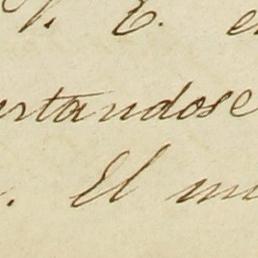 V. E. e
ertandose
. El mi